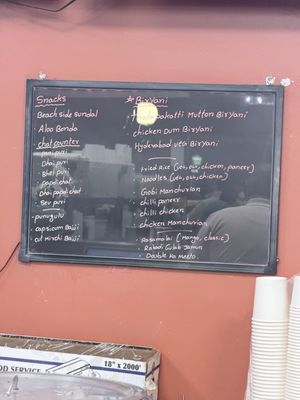 Snacks
Beach side sundal
Aloo Bonda
chat counter
Pani puri
Dhai puri
Bhel puri
papdi chat
Dhai papdi chat
Sev puri
punugulu
capsicum Bajji
cut mirchi Bajji
★ Biryani
Mutton Biryani
chicken Dum Biryani
Hyderabad veg Biryani
Fried Rice (veg, egg, chicken, paneer)
Noodles (veg, egg, chicken)
Gobi Manchurian
chilli paneer
chilli chicken
chicken Manchurian
Rasamalai (Mango, classic)
Rabadi Gulab Jamun
Double ka meeta
OD SERVICE
18" x 2000'